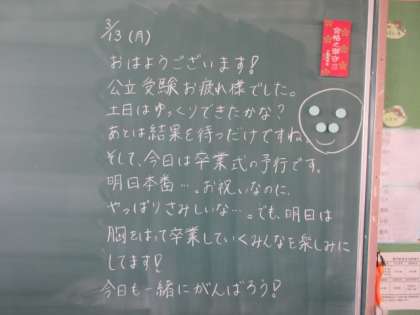 3/13(月)
おはようございます!
公立受験お疲れ様でした。
土日はゆっくりできたかな?
あとは結果を待つだけですね
そして、今日は卒業式の予行です。
明日本番…。お祝いなのに、
やっぱりさみしいな…。でも、明日は
胸をはって卒業していくみんなを楽しみに
してます!
今日も一緒にがんばろう!